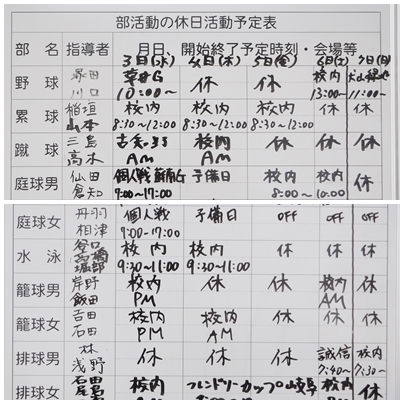 部活動の休日活動予定表
部 名 指導者 月日、開始終了予定時刻・会場等
3日(水) 4日(木) 5日(金) 6日(土) 7日(日)
野 球 川口 10:00〜 休 休 校内 13:00〜 11:00〜
累 球 稲垣 山本 校内 8:30〜12:00 校内 8:30〜12:00 校内 8:30〜12:00 休 休
蹴 球 三島 高木 AM 校内 AM 休 休 休
庭球男 仙田 倉知 個人戦 9:00〜17:00 予備日 校内 8:00〜 校内 10:00 休
庭球女 丹羽 相津 個人戦 9:00〜17:00 予備日 OFF OFF OFF
水 泳 谷口 高橋 堀部 校内 9:30〜11:00 校内 9:30〜11:00 休 休 休
籠球男 岸野 飯田 校内 PM 休 休 校内 AM 休
籠球女 吉田 石田 校内 PM 校内 AM 休 休 休
排球男 林 浅野 休 休 休 誠信 7:40〜 校内 7:30〜
排球女 尾田 校内 フレンドリーカップ 校内 休